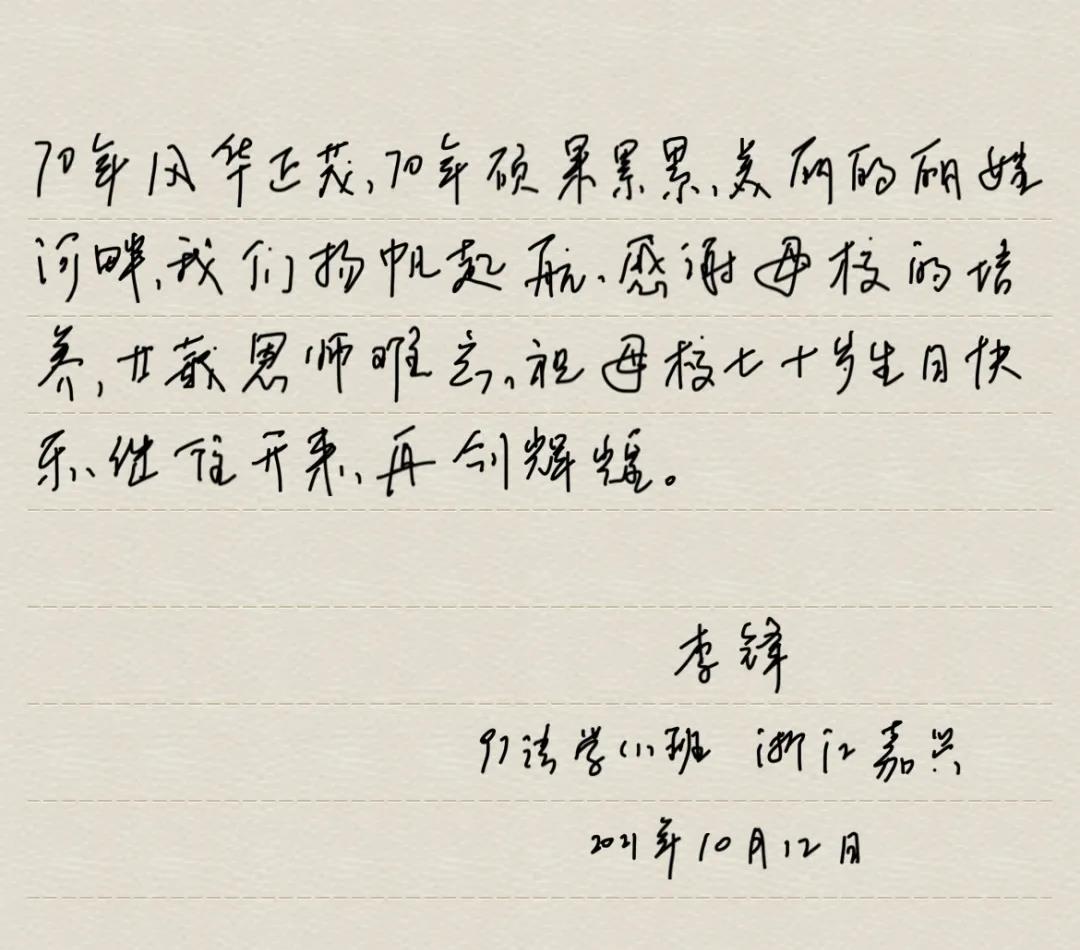 70年风华正茂,70年硕果累累,美丽的丽娃
河畔,我们扬帆起航、感谢母校的培
养,廿载恩师难忘,祝母校七十岁生日快
乐、继往开来、再创辉煌。
李锋
97法学(1)班 浙江嘉兴
2021年10月12日